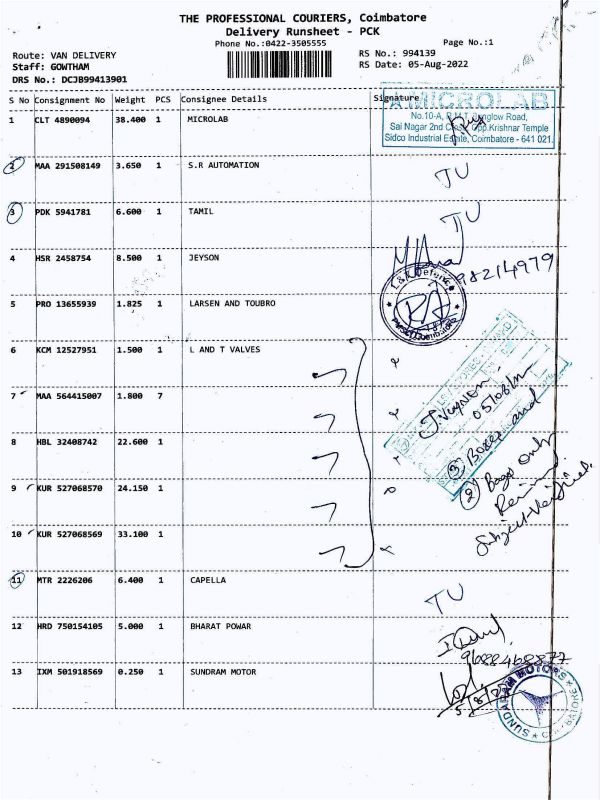 THE PROFESSIONAL COURIERS, Coimbatore
Delivery Runsheet - PCK
Phone No.:0422-3505555
Page No.:1
Route: VAN DELIVERY
RS No.: 994139
Staff: GOWTHAM
RS Date: 05-Aug-2022
DRS No.: DCJB99413901
S No Consignment No Weight PCS Consignee Details Signature
1 CLT 4890094 38.400 1 MICROLAB
MICROLAB
Sai Nagar 2nd Opp.Krishnar Temple
Sidco Industrial Estate, Coimbatore - 641 021.
2 MAA 291508149 3.650 1 S.R AUTOMATION
TU
3 PDK 5941781 6.600 1 TAMIL
TU
4 HSR 2458754 8.500 1 JEYSON
98214979
5 PRO 13655939 1.825 1 LARSEN AND TOUBRO
L&T Defence
6 KCM 12527951 1.500 1 L AND T VALVES
7 MAA 564415007 1.800 7
05/08/
8 HBL 32408742 22.600 1
③ Boxes and
9 KUR 527068570 24.150 1
② Bags only
10 KUR 527068569 33.100 1
11 MTR 2226206 6.400 1 CAPELLA
TU
12 HRD 750154105 5.000 1 BHARAT POWAR
9688468877
13 IXM 501918569 0.250 1 SUNDRAM MOTOR
5/8/22
SUNDARAM MOTORS